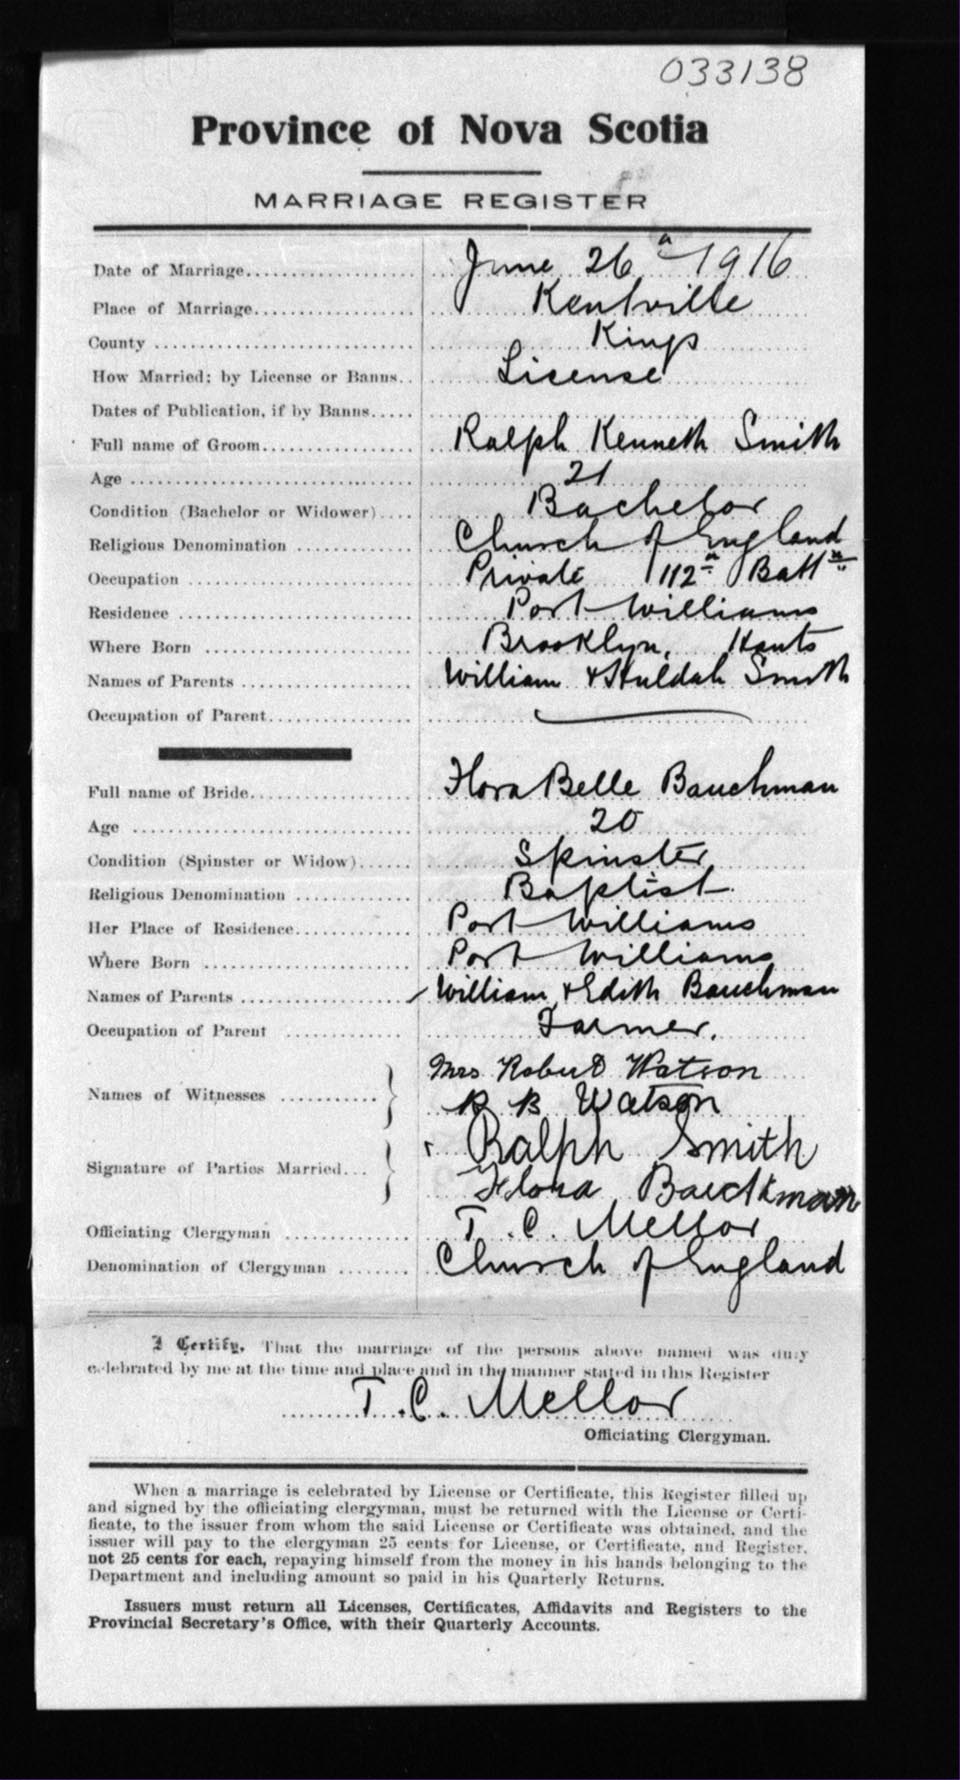 033138
Province of Nova Scotia
MARRIAGE REGISTER
Date of Marriage.................... June 26th 1916
Place of Marriage.................. Kentville
County ............................ Kings
How Married; by License or Banns.. License
Dates of Publication, if by Banns.....
Full name of Groom................. Ralph Kenneth Smith
Age ............................... 21
Condition (Bachelor or Widower).... Bachelor
Religious Denomination ............ Church of England
Occupation ........................ Private 112th Battn
Residence ......................... Port Williams
Where Born ........................ Brooklyn, Hants
Names of Parents .................. William & Huldah Smith
Occupation of Parent...............
Full name of Bride................. Flora Belle Bauchman
Age ............................... 20
Condition (Spinster or Widow)...... Spinster
Religious Denomination ............ Baptist
Her Place of Residence............. Port Williams
Where Born ........................ Port Williams
Names of Parents .................. William & Edith Bauchman
Occupation of Parent .............. Farmer.
Mrs Robert Watson
Names of Witnesses ...........
R B Watson
Ralph Smith
Signature of Parties Married...
Flora Bauckman
Officiating Clergyman ............. T. C. Mellor
Denomination of Clergyman ........ Church of England
I Certify, That the marriage of the persons above named was duly
celebrated by me at the time and place and in the manner stated in this Register
T. C. Mellor
Officiating Clergyman.
When a marriage is celebrated by License or Certificate, this Register filled up
and signed by the officiating clergyman, must be returned with the License or Certi-
ficate, to the issuer from whom the said License or Certificate was obtained, and the
issuer will pay to the clergyman 25 cents for License, or Certificate, and Register,
not 25 cents for each, repaying himself from the money in his hands belonging to the
Department and including amount so paid in his Quarterly Returns.
Issuers must return all Licenses, Certificates, Affidavits and Registers to the
Provincial Secretary's Office, with their Quarterly Accounts.